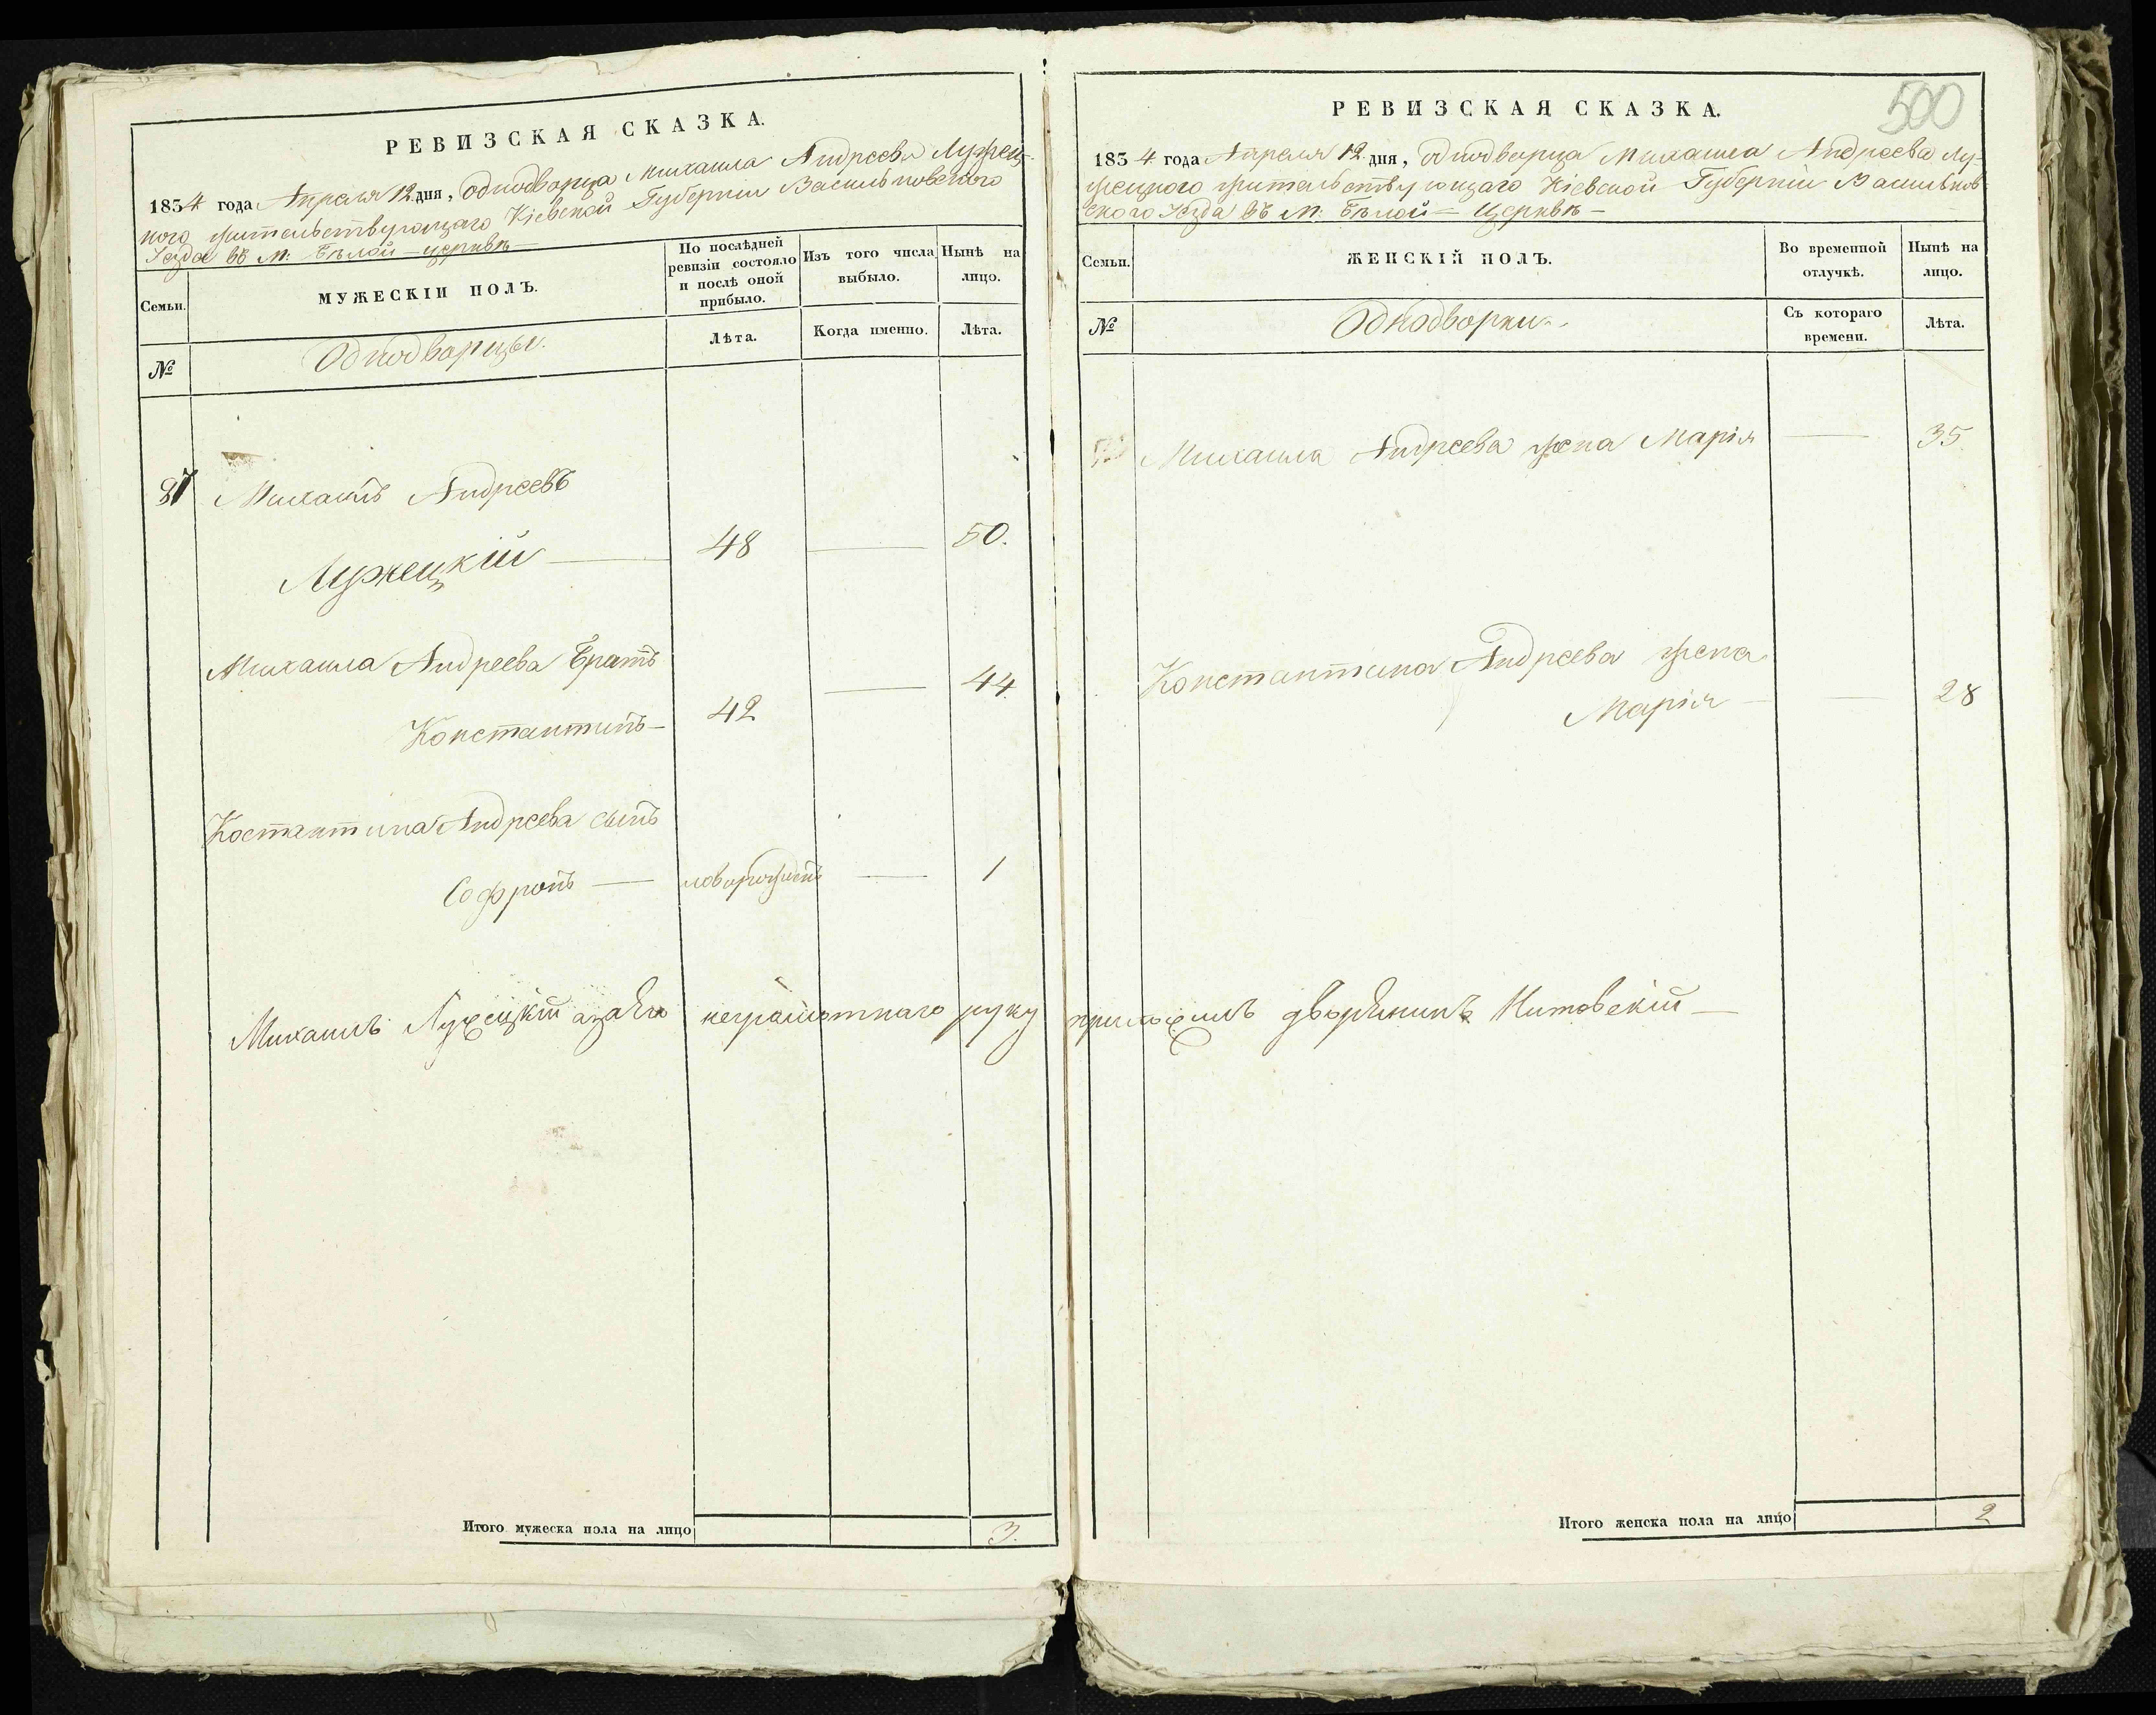 РЕВИЗСКАЯ СКАЗКА.
1834 года Апреля 12 дня, однодворца Михаила Андреева Лужец-
кого жительствующаго Кіевской Губерніи Васильковского
Уезда въ М: Белой-церквѣ
Семьи.
МУЖЕСКІЙ ПОЛЪ.
По послѣдней
ревизіи состояло
и послѣ оной
прибыло.
Изъ того числа
выбыло.
Нынѣ на
лицо.
№
Однодворцы.
Лѣта.
Когда именно.
Лѣта.
87
Михаилъ Андреевъ
Лужецкій — 48 — 50.
Михаила Андреева Братъ
Константинъ — 42 — 44.
Костантина Андреева сынъ
Софронъ — новорожденъ — 1
Михаилъ Лужецкій а за него неграмотнаго руку приложилъ дворянинъ Китовскій —
Итого мужеска пола на лицо 3.
500
РЕВИЗСКАЯ СКАЗКА.
1834 года Апреля 12 дня, однодворца Михаила Андреева Лу-
жецкого жительствующаго Кіевской Губерніи Васильков-
ского Уезда въ М: Белой-Церквѣ —
Семьи.
ЖЕНСКІЙ ПОЛЪ.
Во временной
отлучкѣ.
Нынѣ на
лицо.
№
Однодворки.
Съ котораго
времени.
Лѣта.
Михаила Андреева жена Марія — 35
Константина Андреева жена
Марія — 28
Итого женска пола на лицо 2